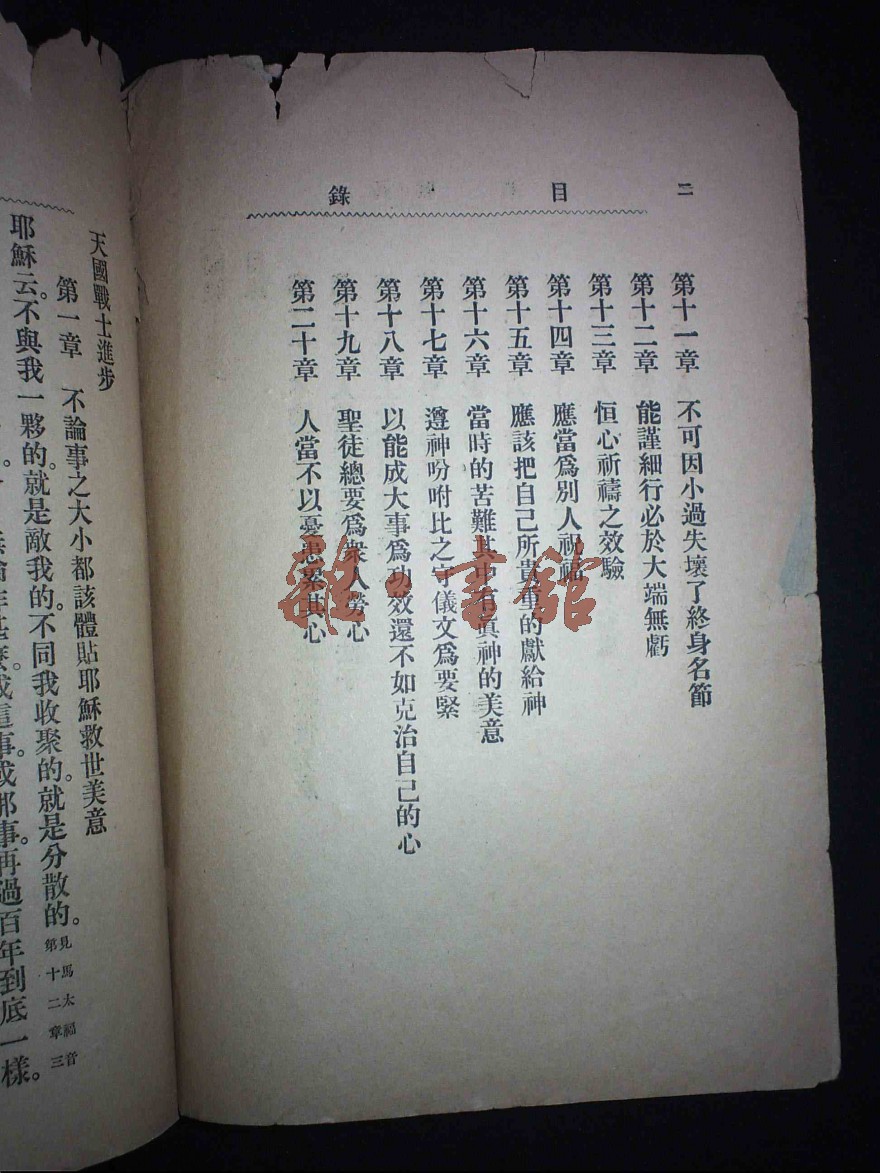 二
目錄
第十一章 不可因小過失壞了終身名節
第十二章 能謹細行必於大端無虧
第十三章 恒心祈禱之效驗
第十四章 應當爲別人祝福
第十五章 應該把自己所貴重的獻給神
第十六章 當時的苦難其中有眞神的美意
第十七章 遵神吩咐比之守儀文爲要緊
第十八章 以能成大事爲功效還不如克治自己的心
第十九章 聖徒總要爲衆人勞心
第二十章 人當不以憂患累其心
雜书館
天國戰士進步
第一章 不論事之大小都該體貼耶穌救世美意
耶穌云。不與我一夥的。就是敵我的。不同我收聚的。就是分散的。見馬太福音第十二章三
事。或那事。再過百年到底一樣。